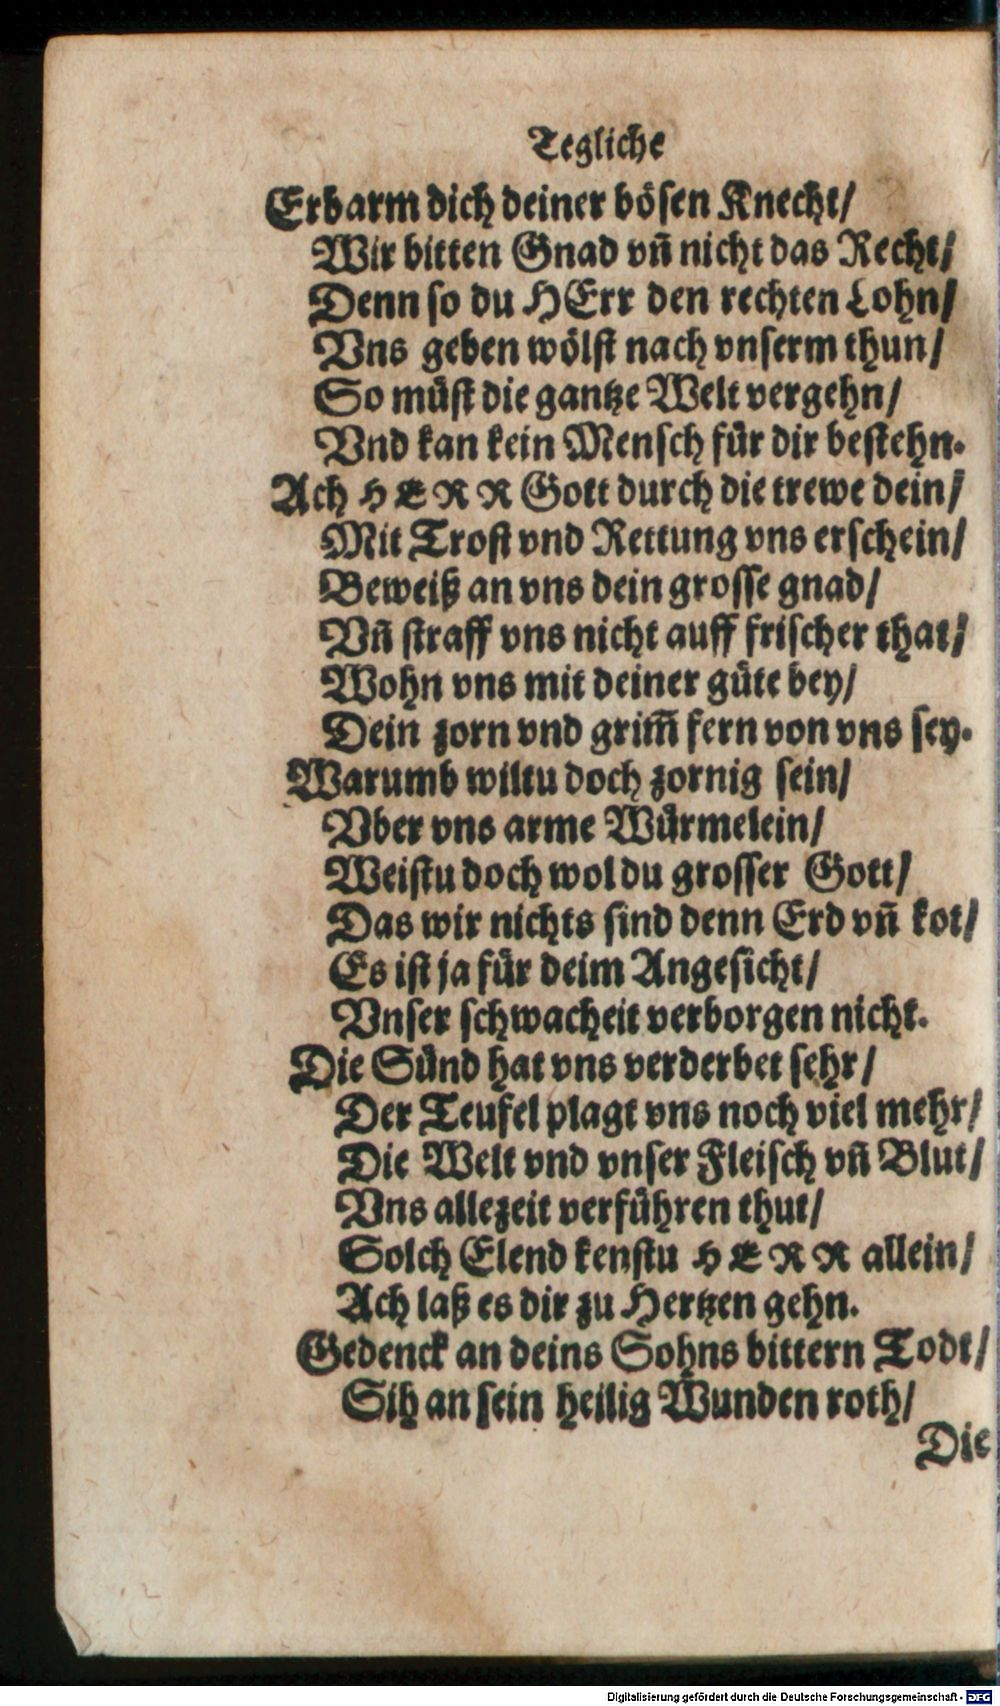 Tegliche
Erbarm dich deiner bösen Knecht/
Wir bitten Gnad vñ nicht das Recht/
Denn so du HErr den rechten Lohn/
Vns geben wölst nach vnserm thun/
So müst die gantze Welt vergehn/
Vnd kan kein Mensch für dir bestehn.
Ach HERR Gott durch die trewe dein/
Mit Trost vnd Rettung vns erschein/
Beweiß an vns dein grosse gnad/
Vñ straff vns nicht auff frischer that/
Wohn vns mit deiner güte bey/
Dein zorn vnd grim̃ fern von vns sey.
Warumb wiltu doch zornig sein/
Vber vns arme Würmelein/
Weistu doch wol du grosser Gott/
Das wir nichts sind denn Erd vñ kot/
Es ist ja für deim Angesicht/
Vnser schwacheit verborgen nicht.
Die Sünd hat vns verderbet sehr/
Der Teufel plagt vns noch viel mehr/
Die Welt vnd vnser Fleisch vñ Blut/
Vns allezeit verführen thut/
Solch Elend kenstu HERR allein/
Ach laß es dir zu Hertzen gehn.
Gedenck an deins Sohns bittern Todt/
Sih an sein heilig Wunden roth/
Die
Digitalisierung gefördert durch die Deutsche Forschungsgemeinschaft - DFG